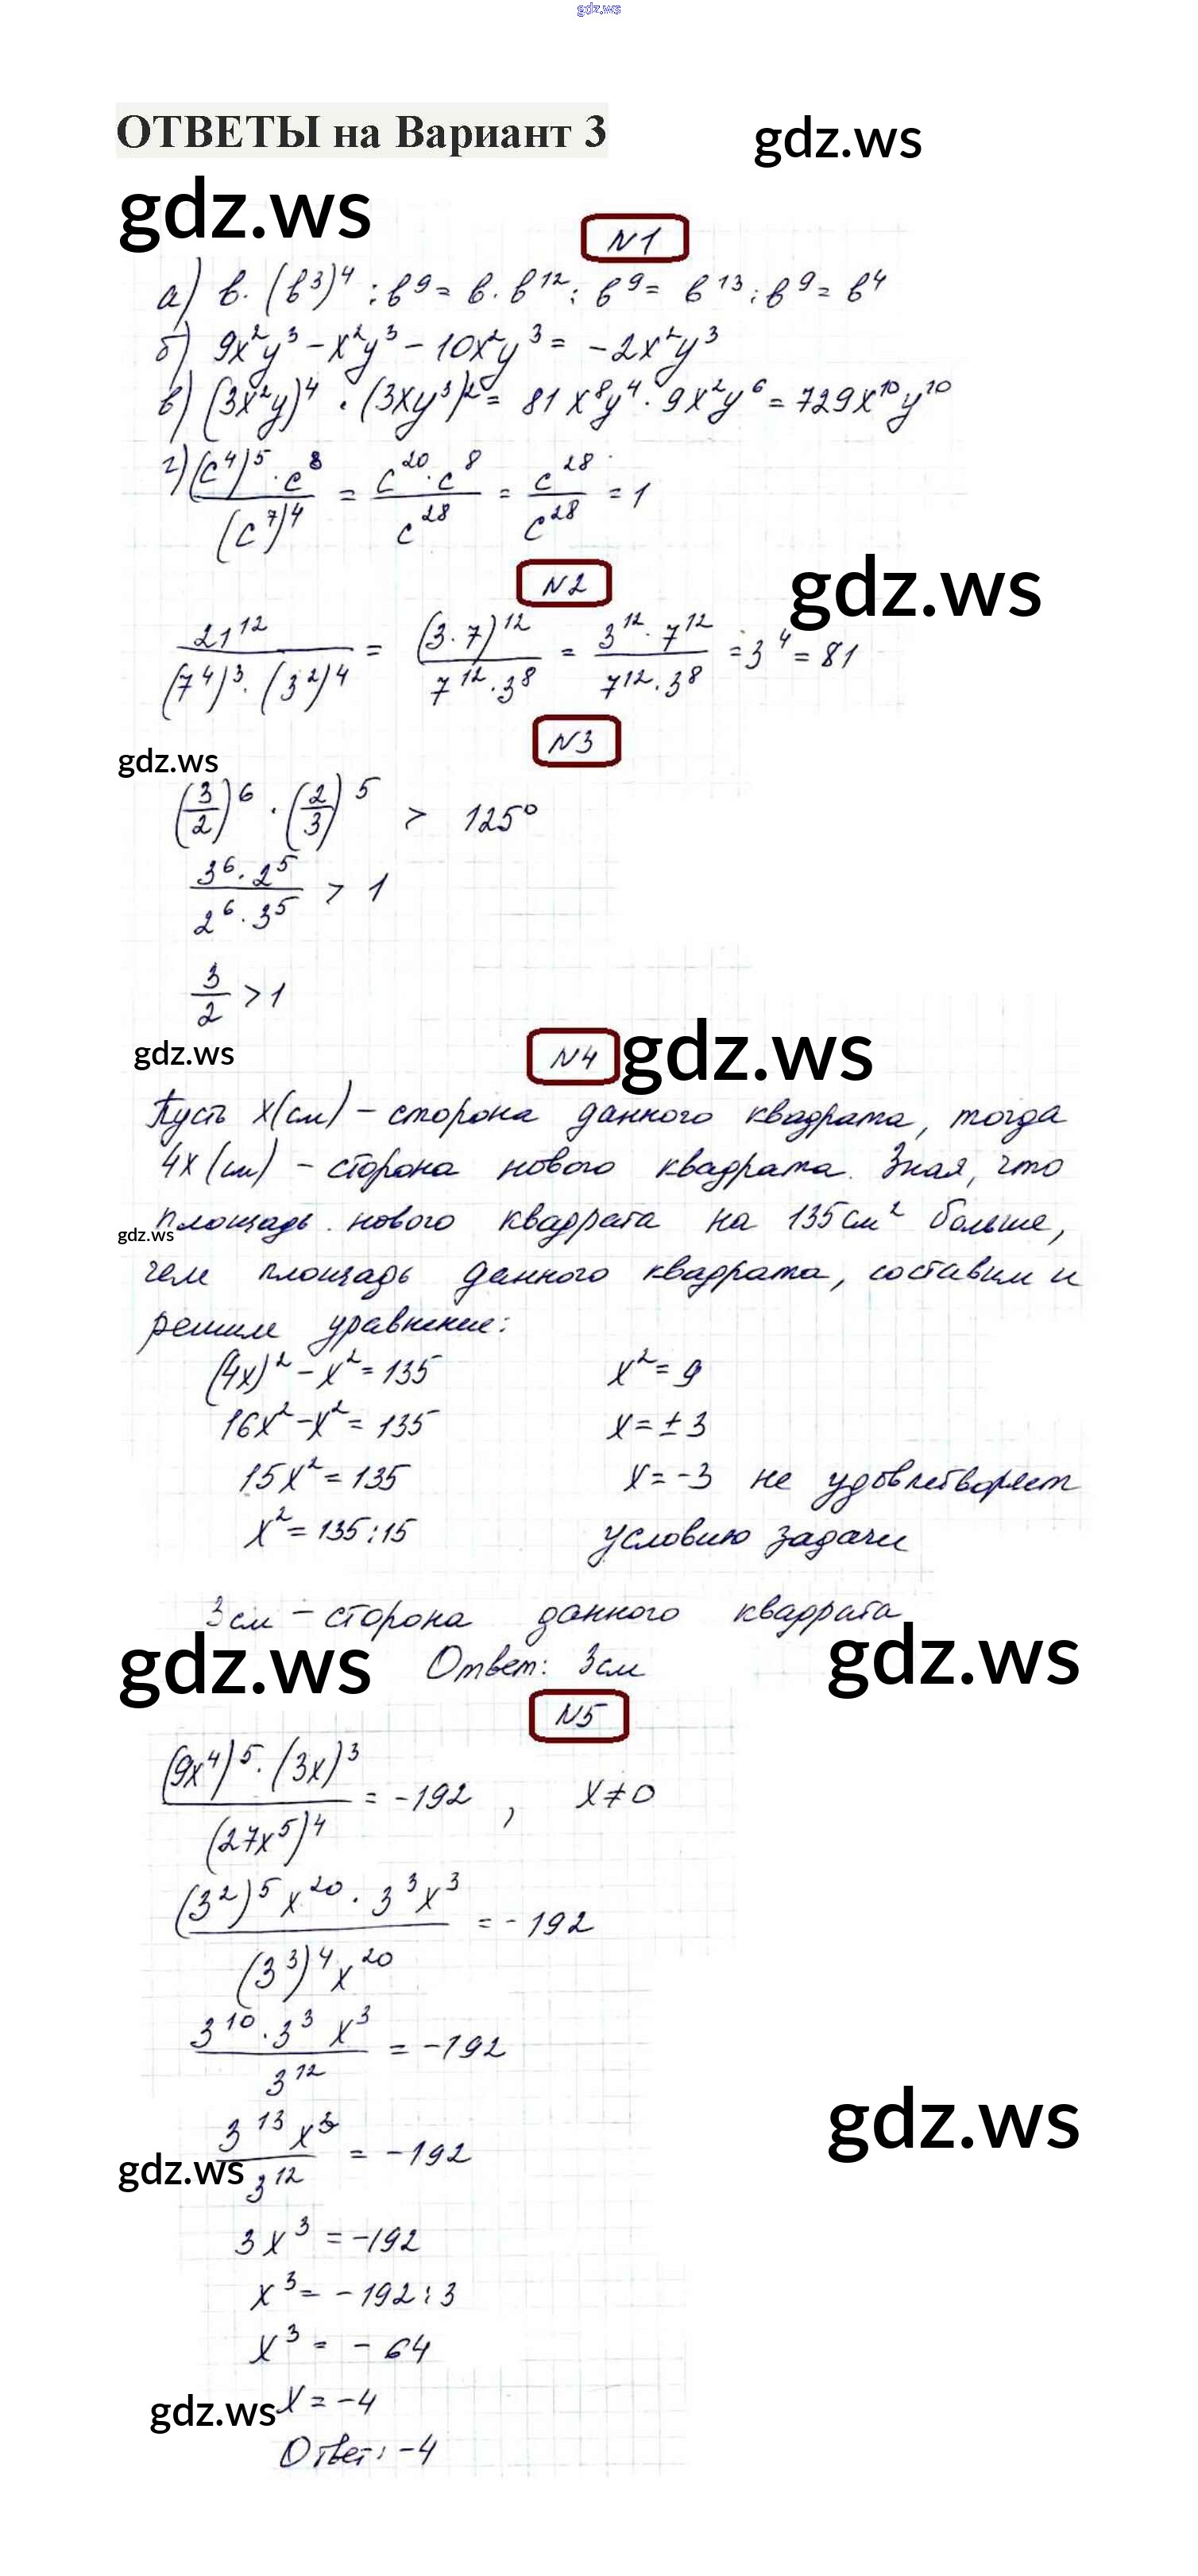 gdz.ws
ОТВЕТЫ на Вариант 3
gdz.ws
gdz.ws
N1
а) b·(b³)⁴ : b⁹ = b·b¹² : b⁹ = b¹³ : b⁹ = b⁴
б) 9x²y³ − x²y³ − 10x²y³ = −2x²y³
в) (3x²y)⁴ · (3xy³)² = 81x⁸y⁴ · 9x²y⁶ = 729x¹⁰y¹⁰
г) (c⁴)⁵·c⁸ / (c⁷)⁴ = c²⁰·c⁸ / c²⁸ = c²⁸ / c²⁸ = 1
N2
gdz.ws
21¹² / (7⁴)³·(3²)⁴ = (3·7)¹² / 7¹²·3⁸ = 3¹²·7¹² / 7¹²·3⁸ = 3⁴ = 81
N3
gdz.ws
(3/2)⁶ · (2/3)⁵ > 125⁰
3⁶·2⁵ / 2⁶·3⁵ > 1
3/2 > 1
gdz.ws
N4
gdz.ws
Пусть x(см) – сторона данного квадрата, тогда
4x (см) – сторона нового квадрата. Зная, что
площадь нового квадрата на 135 см² больше,
gdz.ws
чем площадь данного квадрата, составим и
решим уравнение:
(4x)² − x² = 135 x² = 9
16x² − x² = 135 x = ±3
15x² = 135 x = −3 не удовлетворяет
x² = 135 : 15 условию задачи
3см – сторона данного квадрата
gdz.ws
gdz.ws
Ответ: 3см
N5
(9x⁴)⁵·(3x)³ / (27x⁵)⁴ = −192 , x ≠ 0
(3²)⁵x²⁰ · 3³x³ / (3³)⁴x²⁰ = −192
3¹⁰·3³ x³ / 3¹² = −192
gdz.ws
3¹³x³ / 3¹² = −192
gdz.ws
3x³ = −192
x³ = −192 : 3
x³ = −64
x = −4
gdz.ws
Ответ: −4